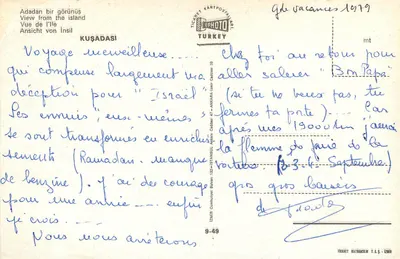 Adadan bir görünüş
View from the island
Vue de l'île
Ansicht von Insil
KUŞADASI
TICARET KARTPOSTAL
TURKEY
gdes vacances 1979
Voyage merveilleuse....
qui compense largement ma
déception pour "Israël"
Les ennuis "eux-mêmes"
se sont transformés en enrichis
sements (Ramadan - manque
de benzine). J'ai des courage
pour une année --- enfin
je crois ---
Nous nous arrêterons
chez toi au retour pour
aller saluer "Bon Papa"
(si tu ne veux pas, tu
fermes ta porte) ---- Car
après mes 19000 km j'aurai
la flemme de faire de la
(2-3-4 Septembre)
gros gros baisers
de
9-49